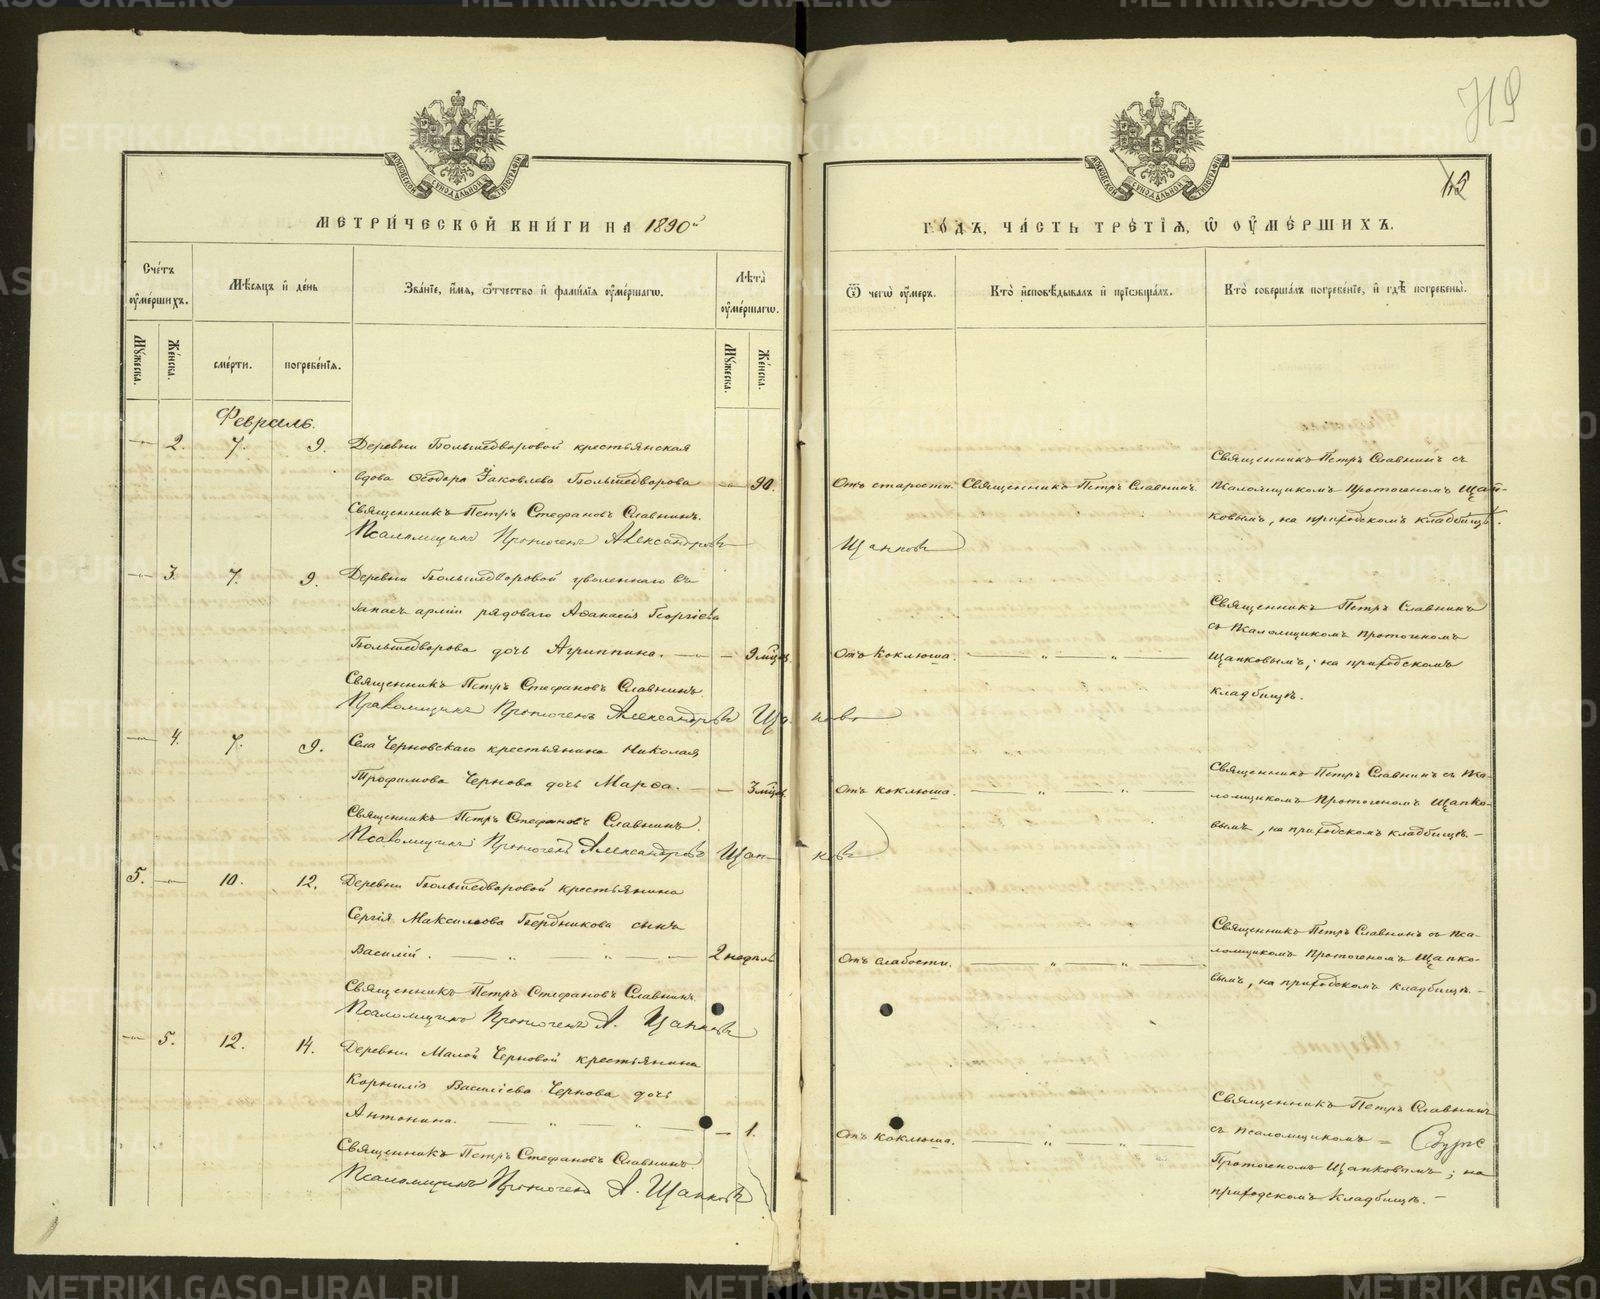 719
12
МОСКОВСКОЙ СѴНОДАЛЬНОЙ ТИПОГРАФІИ
МОСКОВСКОЙ СѴНОДАЛЬНОЙ ТИПОГРАФІИ
МЕТРИ́ЧЕСКОЙ КНИ́ГИ НА 1890й
ГО́ДЪ, ЧА́СТЬ ТРЕ́ТІѦ, Ѽ ОУМЕ́РШИХЪ.
Сче́тъ оуме́ршихъ.
Мѣ́сѧцъ и де́нь
Зва́нїе, и́мѧ, ѻ́тчество и фами́лїѧ оуме́ршагѡ.
Лѣта̀ оуме́ршагѡ.
Ѿ чегѡ̀ оу́меръ.
Кто̀ и҆сповѣ́дывалъ и прїѡбща́лъ.
Кто̀ соверша́лъ погребе́нїе, и гдѣ̀ погребены̀.
Мꙋ́жеска.
Же́нска.
сме́рти.
погребе́нїѧ.
Мꙋ́жеска.
Же́нска.
Февраль.
— 2. 7. 9. Деревни Большедворовой крестьянская
вдова Ѳеодора Іаковлева Большедворова — 90.
Священникъ Петръ Стефановъ Славнинъ.
Псаломщикъ Протогенъ Александровъ Щапковъ
Отъ старости. Священникъ Петръ Славнинъ.
Священникъ Петръ Славнинъ съ
псаломщикомъ Протогеномъ Щап-
ковымъ, на приходскомъ кладбищѣ.
— 3. 7. 9. Деревни Большедворовой уволеннаго въ
запасъ арміи рядоваго Аѳанасія Георгіева
Большедворова дочь Агриппина. — — 9 мѣсяц.
Священникъ Петръ Стефановъ Славнинъ.
Псаломщикъ Протогенъ Александровъ Щапковъ
Отъ коклюша. — „ — „ —
Священникъ Петръ Славнинъ
съ псаломщикомъ Протогеномъ
Щапковымъ; на приходскомъ
кладбищѣ.
— 4. 7. 9. Села Черновскаго крестьянина Николая
Трофимова Чернова дочь Марѳа. — — 3 мѣсяц.
Священникъ Петръ Стефановъ Славнинъ.
Псаломщикъ Протогенъ Александровъ Щапковъ
Отъ коклюша. — „ — „ —
Священникъ Петръ Славнинъ съ пса-
ломщикомъ Протогеномъ Щапко-
вымъ, на приходскомъ кладбищѣ. —
5. — 10. 12. Деревни Большедворовой крестьянина
Сергія Максимова Бердникова сынъ
Василій. — „ „ — 2 недѣль
Священникъ Петръ Стефановъ Славнинъ.
Псаломщикъ Протогенъ А. Щапковъ
Отъ слабости. — „ — „ —
Священникъ Петръ Славнинъ съ пса-
ломщикомъ Протогеномъ Щапко-
вымъ, на приходскомъ кладбищѣ. —
— 5. 12. 14. Деревни Малой Черновой крестьянина
Корнилія Василіева Чернова дочь
Антонина. — „ „ — — 1.
Священникъ Петръ Стефановъ Славнинъ
Псаломщикъ Протогенъ А. Щапковъ
Отъ коклюша. — „ — „ —
Священникъ Петръ Славнинъ
съ псаломщикомъ =
Протогеномъ Щапковымъ; на
приходскомъ кладбищѣ. —
METRIKI.GASO-URAL.RU